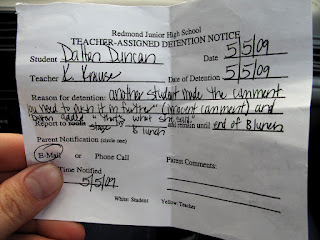 Redmond Junior High School
TEACHER-ASSIGNED DETENTION NOTICE
Student Dalton Duncan Date 5/5/09
Teacher K. Krause Date of Detention 5/5/09
Reason for detention: another student made the comment
"you need to push it in further" (innocent comment) and
Dalton added "that's what she said."
Report to room stage B lunch and remain until end of B lunch
Parent Notification (circle one)
E-Mail or Phone Call Parent Comments:
Time Notified
5/5/09
White: Student Yellow: Teacher